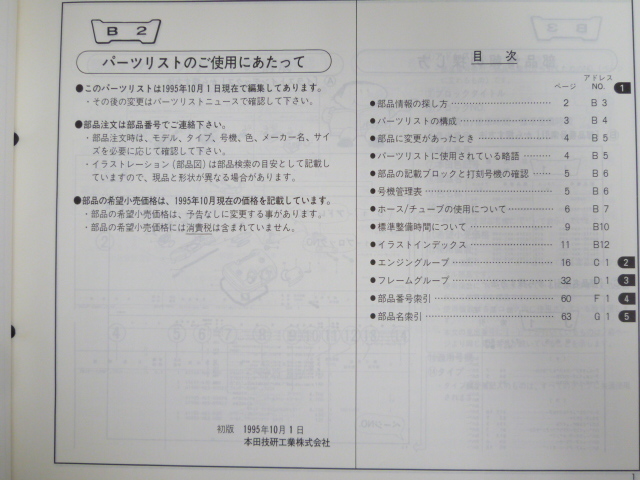 B 2
パーツリストのご使用にあたって
●このパーツリストは1995年10月1日現在で編集してあります。
・その後の変更はパーツリストニュースで確認して下さい。
●部品注文は部品番号でご連絡下さい。
・部品注文時は、モデル、タイプ、号機、色、メーカー名、サイ
ズを必要に応じて確認して下さい。
・イラストレーション(部品図)は部品検索の目安として記載し
ていますので、現品と形状が異なる場合があります。
●部品の希望小売価格は、1995年10月現在の価格を記載しています。
・部品の希望小売価格は、予告なしに変更する事があります。
・部品の希望小売価格には消費税は含まれていません。
初版 1995年10月1日
本田技研工業株式会社
目 次
ページ アドレスNO.
●部品情報の探し方 2 B 3 1
●パーツリストの構成 3 B 4
●部品に変更があったとき 4 B 5
●パーツリストに使用されている略語 4 B 5
●部品の記載ブロックと打刻号機の確認 5 B 6
●号機管理表 5 B 6
●ホース/チューブの使用について 6 B 7
●標準整備時間について 9 B10
●イラストインデックス 11 B12
●エンジングループ 16 C 1 2
●フレームグループ 32 D 1 3
●部品番号索引 60 F 1 4
●部品名索引 63 G 1 5